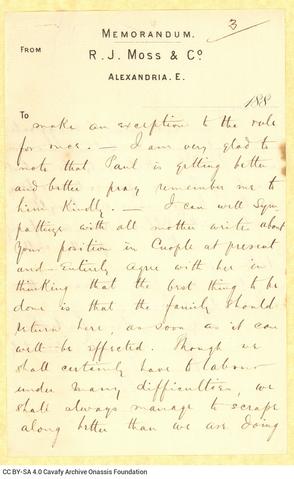 3
MEMORANDUM.
FROM
R. J. MOSS & Co.
ALEXANDRIA. E.
188
To
make an exception to the rule
for once. — I am very glad to
note that Paul is getting better
and better pray remember me to
him kindly. — I can well sym
pathize with all mother writes about
your position in Cnople at present
and entirely agree with her in
thinking that the best thing to be
done is that the family should
return here, as soon as it can
well be effected. Though we
shall certainly have to labour
under many difficulties, we
shall always manage to scrape
along better than we are doing
CC BY-SA 4.0 Cavafy Archive Onassis Foundation